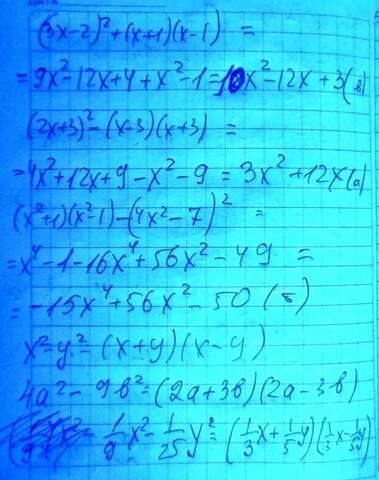 (3x-2)²+(x+1)(x-1) =
= 9x²-12x+4+x²-1=10x²-12x+3(в)
(2x+3)²-(x-3)(x+3) =
=4x²+12x+9-x²-9 = 3x²+12x(а)
(x²+1)(x²-1)-(4x²-7)² =
=x⁴-1-16x⁴+56x²-49 =
= -15x⁴+56x²-50 (б)
x²-y²=(x+y)(x-y)
4a²-9b²=(2a+3b)(2a-3b)
1/9x²-1/25y²=(1/3x+1/5y)(1/3x-1/5y)